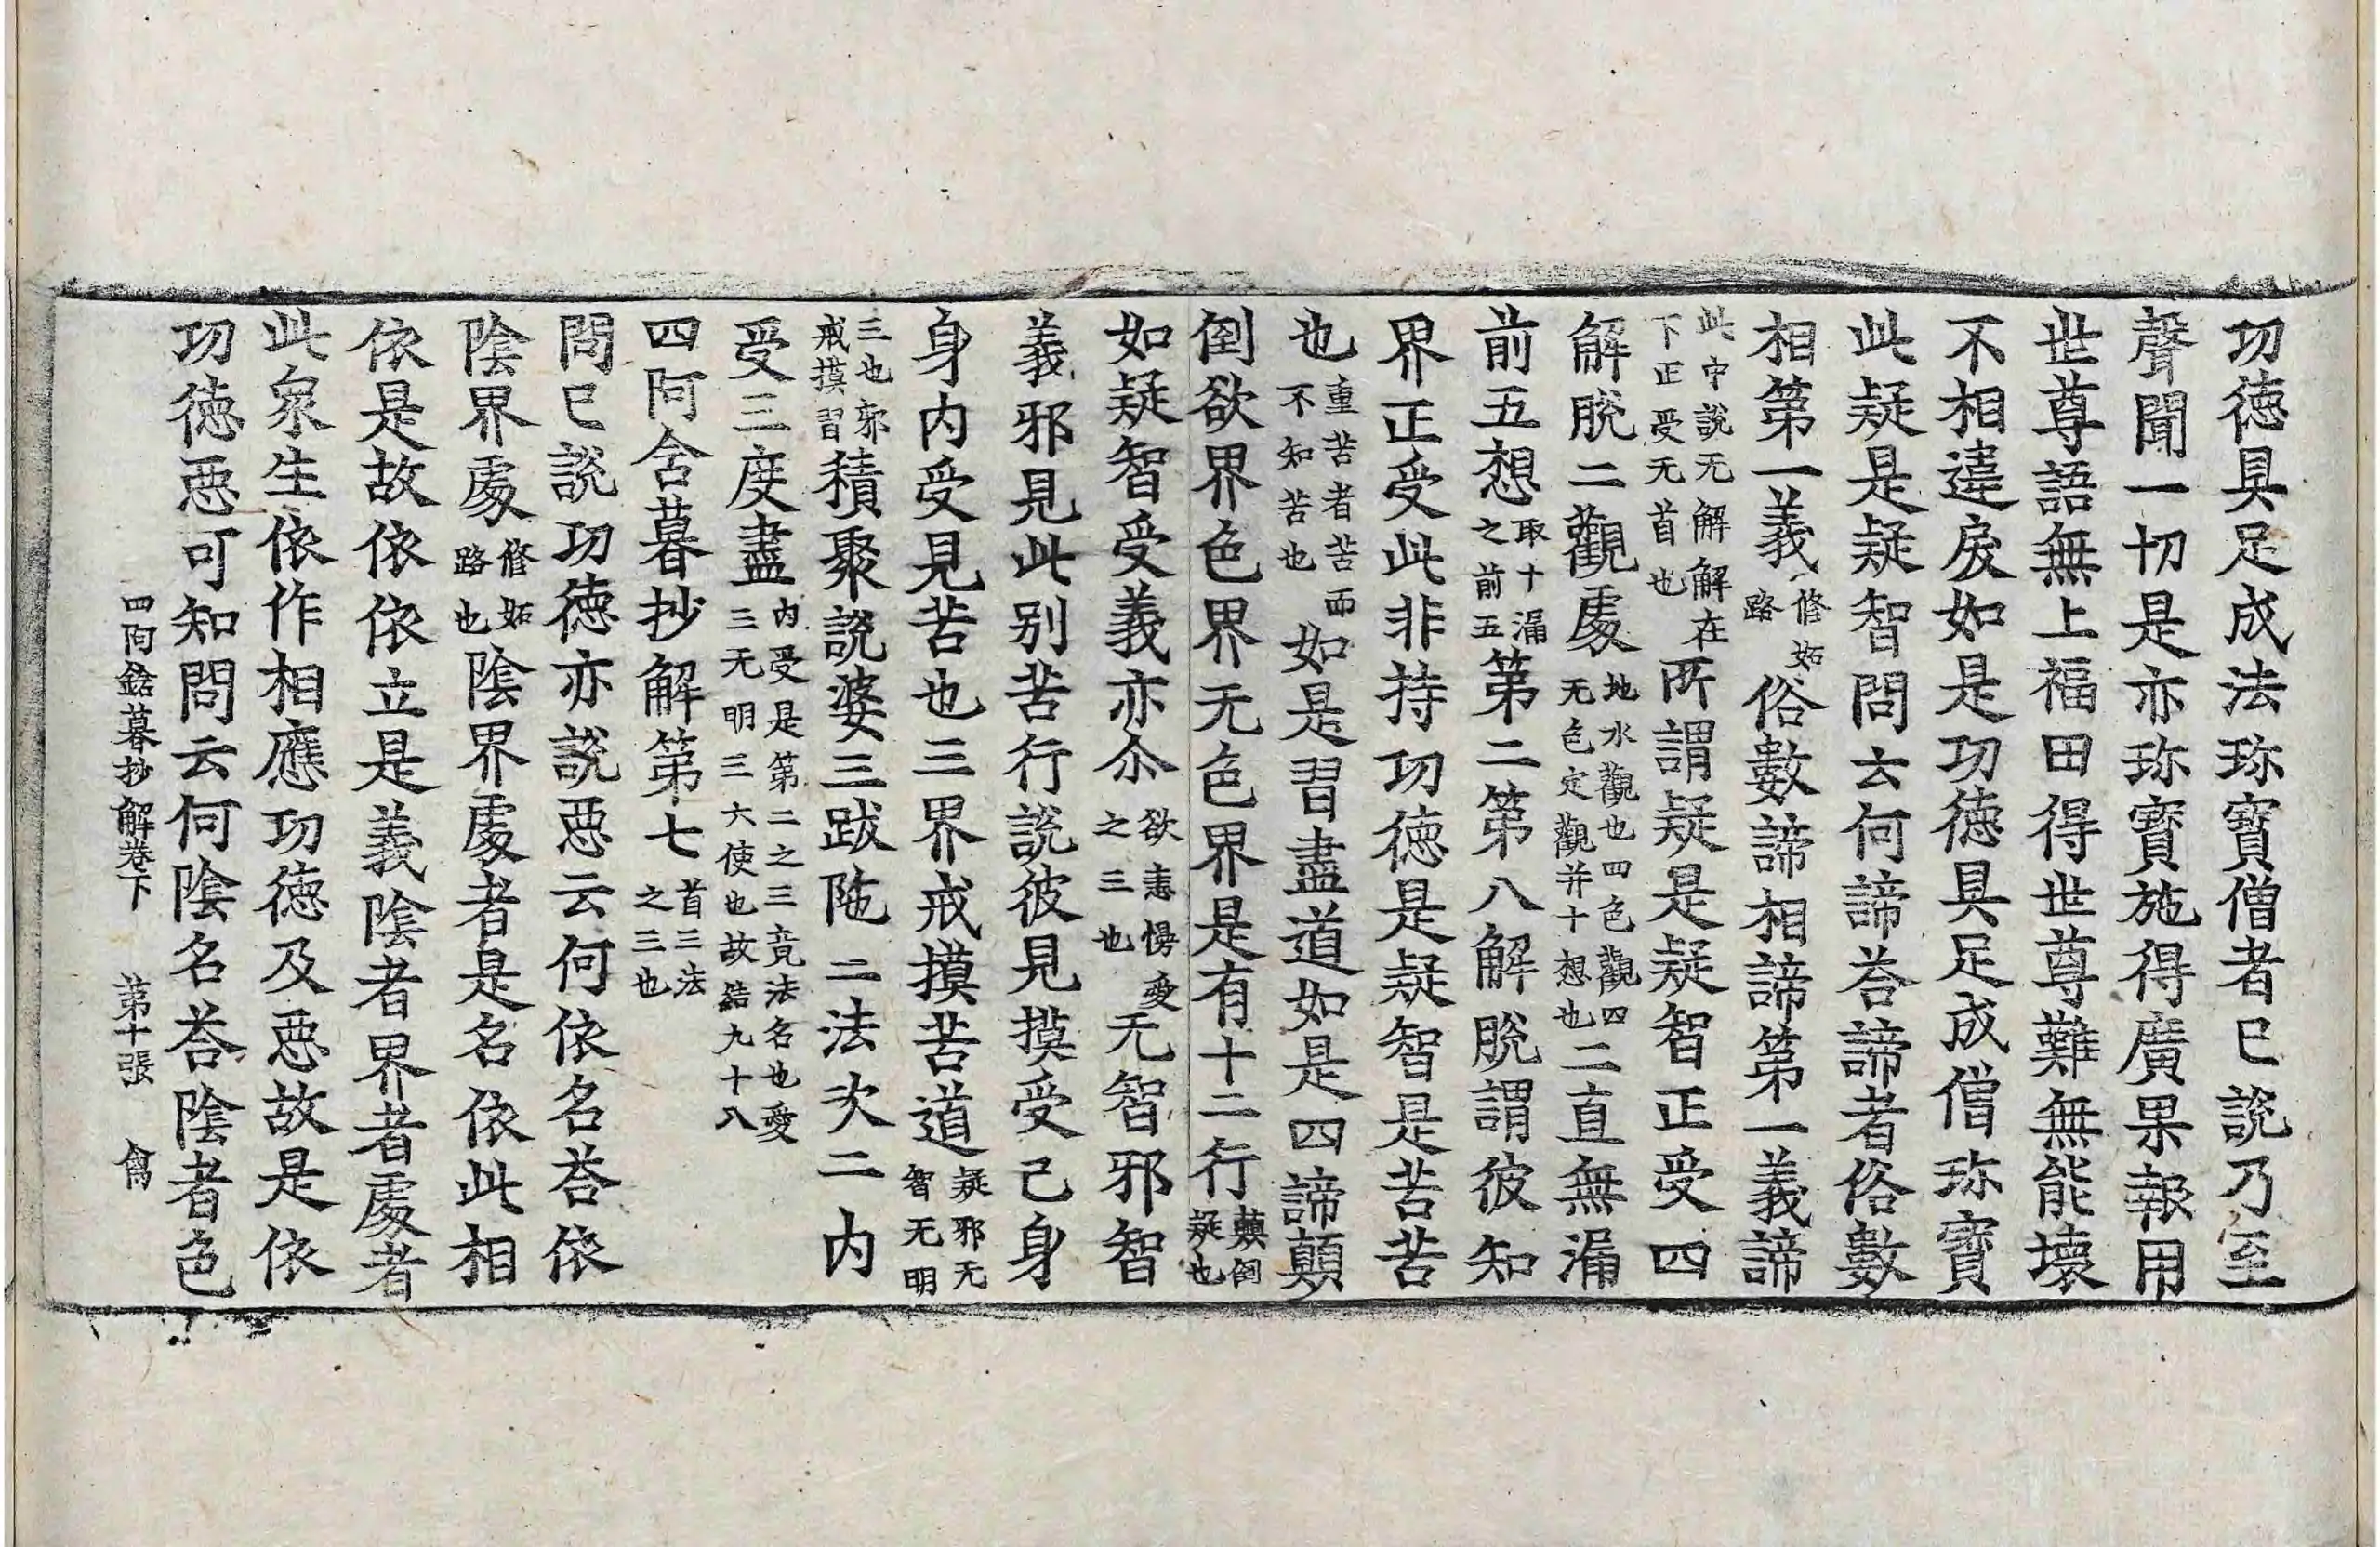 功德具足成法珎寶僧者已說乃至
聲聞一切是亦珎寶施得廣果報用
世尊語無上福田得世尊難無能壞
不相違戾如是功德具足成僧珎寶
此疑是疑智問云何諦荅諦者俗數
相第一義修妬路俗數諦相諦第一義諦
此中說无解解在下正受无首也所謂疑是疑智正受四
解脫二觀處地水觀也四色觀四无色定觀并十想也二直無漏
前五想取十漏之前五第二第八解脫謂彼知
界正受此非持功德是疑智是苦苦
也重苦者苦而不知苦也如是習盡道如是四諦顛
倒欲界色界无色界是有十二行顛倒疑也
如疑智受義亦尒欲恚慢愛之三也无智邪智
義邪見此別苦行說彼見摸受己身
身内受見苦也三界戒摸苦道疑邪无智无明
三也邪戒摸習積聚說婆三跋陁二法次二内
受三度盡内受是第二之三竟法名也愛三无明三六使也故結九十八
四阿含暮抄解第七首三法之三也
問已說功德亦說惡云何依名荅依
陰界處修妬路也陰界處者是名依此相
依是故依依立是義陰者界者處者
此衆生依作相應功德及惡故是依
功德惡可知問云何陰名荅陰者色
四阿鋡暮抄解卷下 第十張 禽